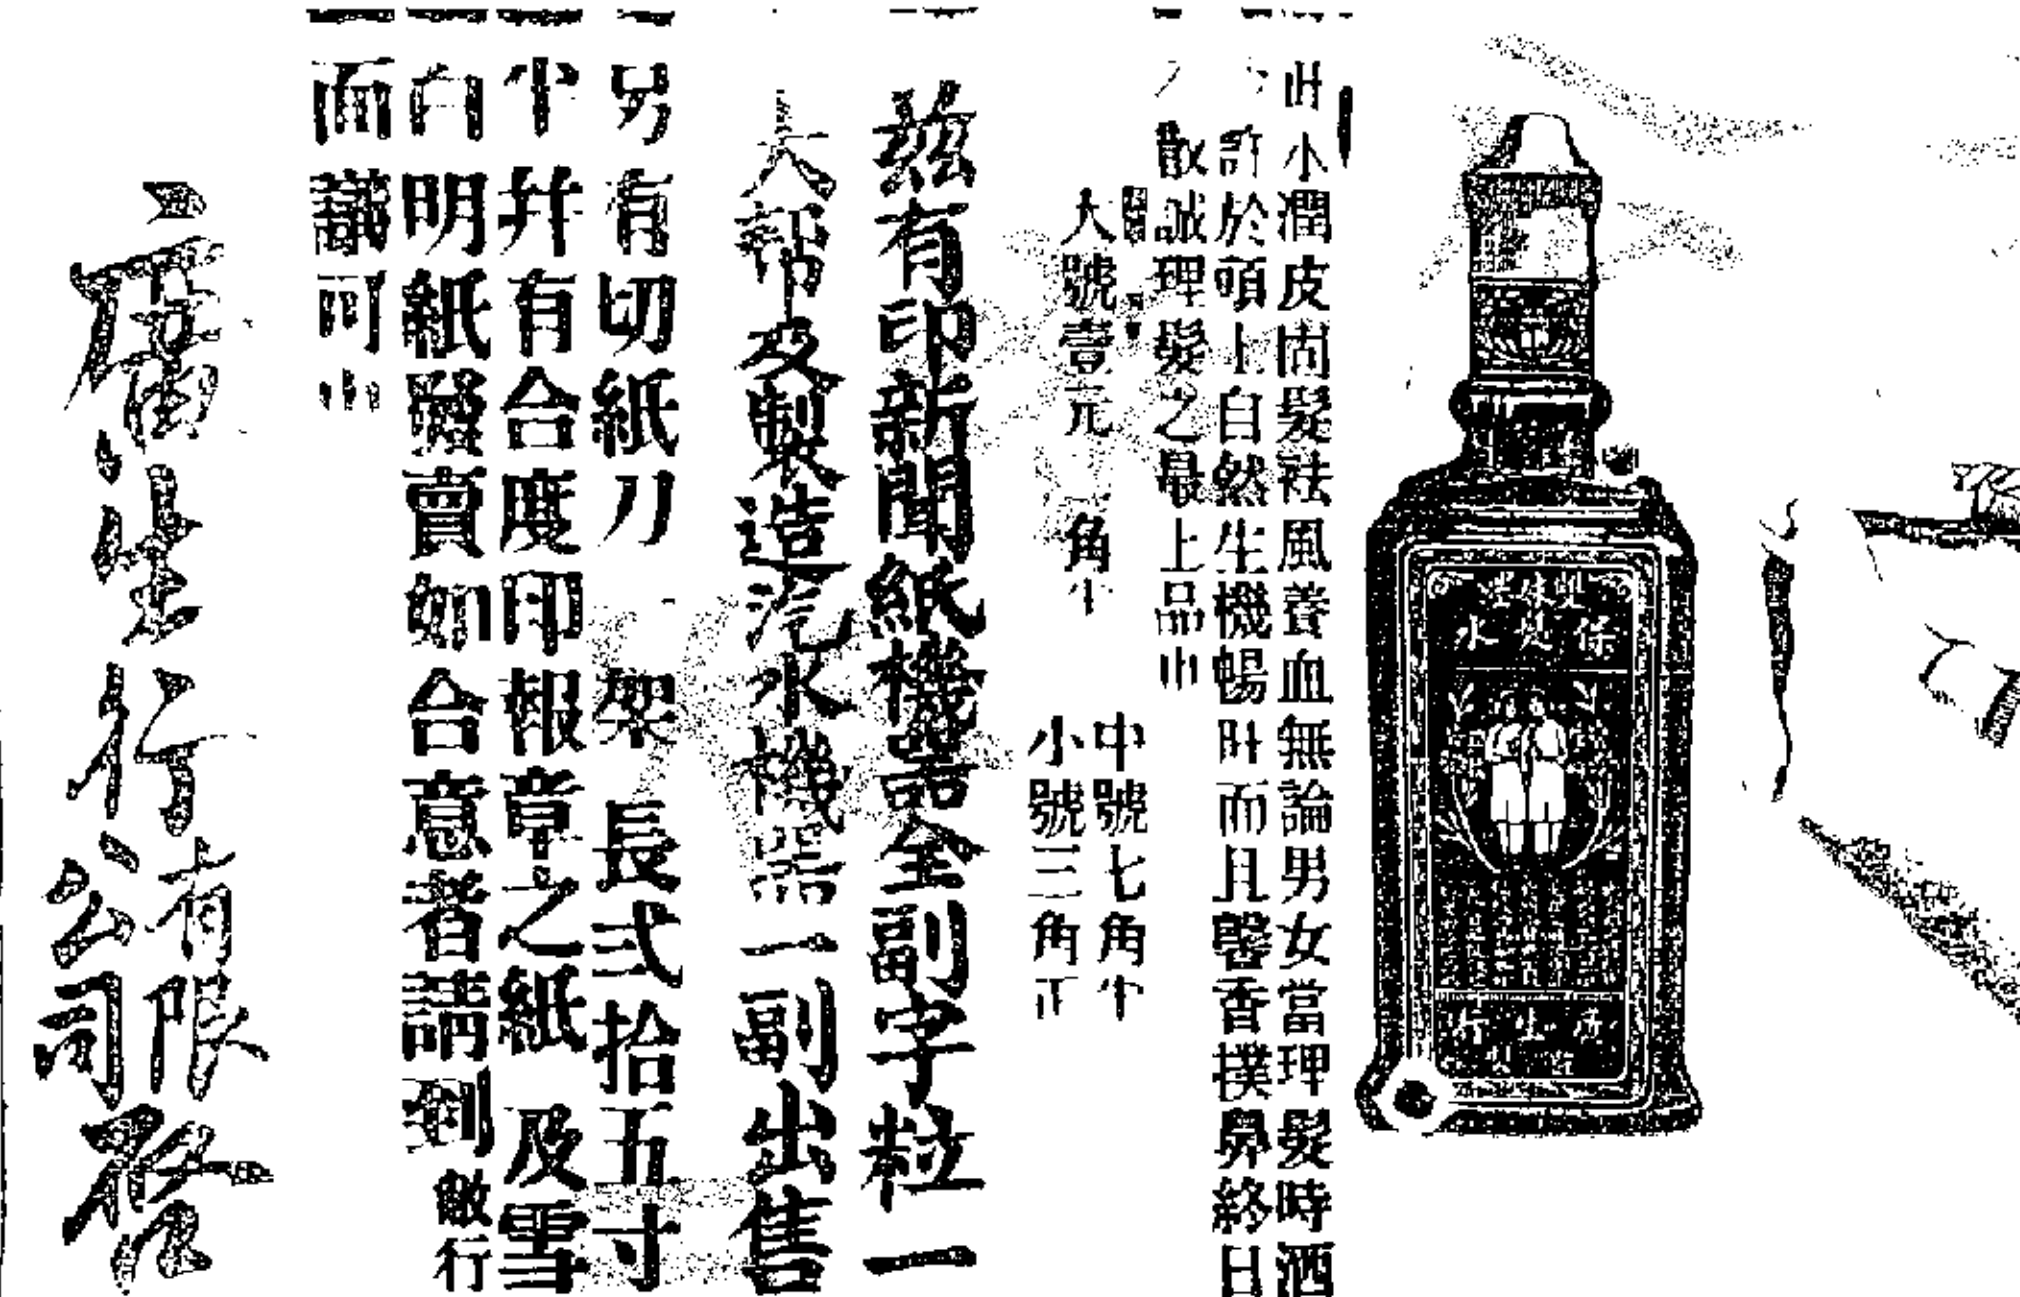 此水潤皮固髮祛風養血無論男女當理髮時洒
少許於頭上自然生機暢旺而且馨香撲鼻終日
不散誠理髮之最上品也
大號壹元 角半
中號七角半
小號三角正
茲有印新聞紙機器全副字粒一
大幫及製造汽水機器一副出售
另有切紙刀 架長式拾五寸
半幷有合度印報章之紙及雪
白明紙發賣如合意者請到敝行
面議可也
廣生行有限公司啓